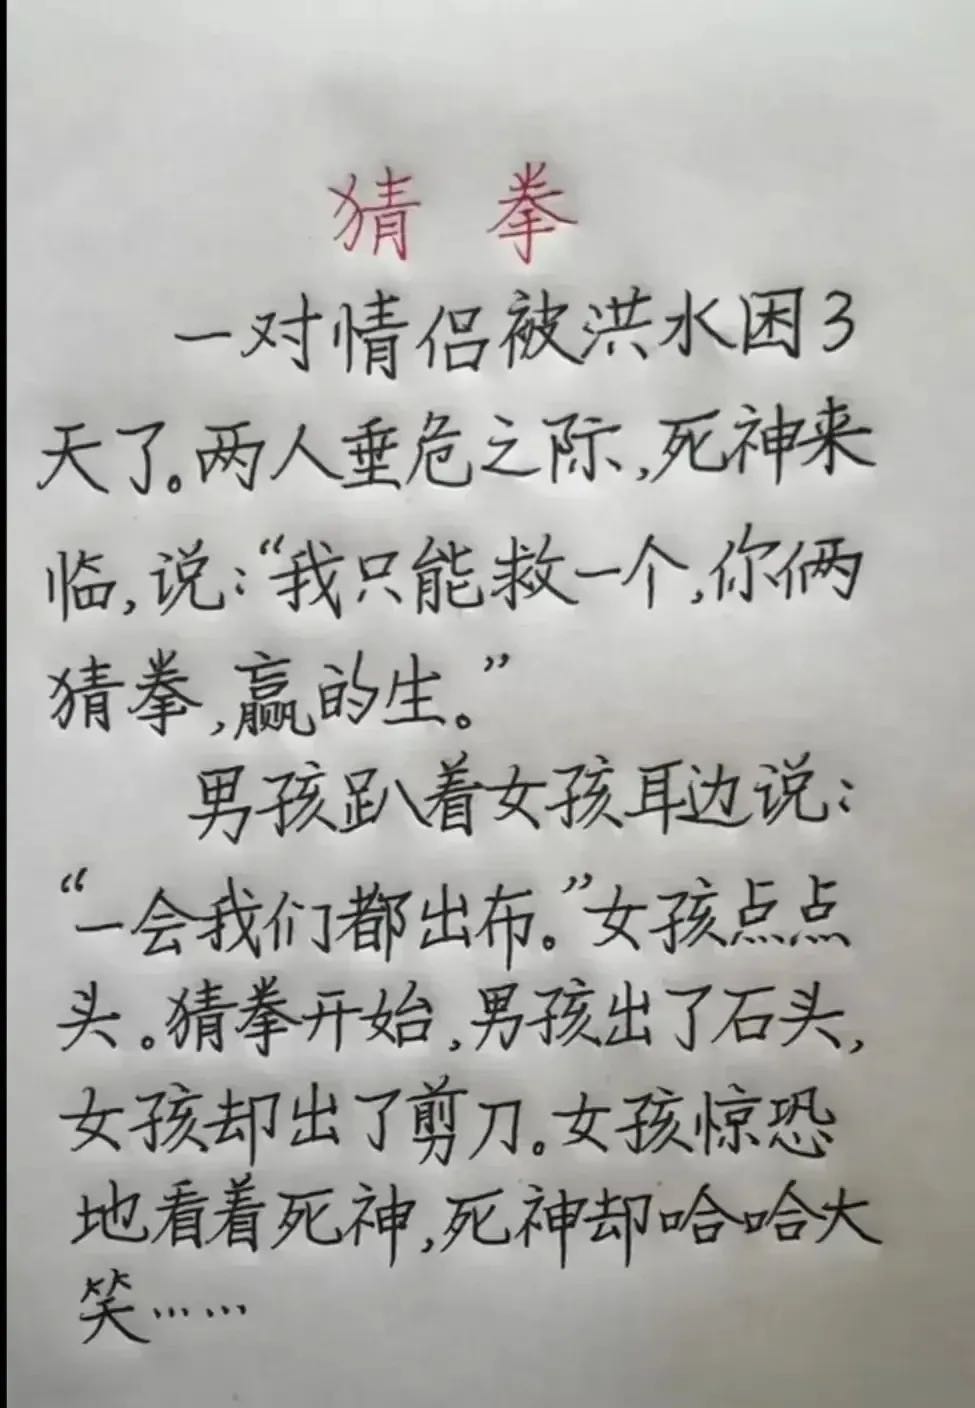 猜 拳
一对情侣被洪水困3
天了。两人垂危之际,死神来
临,说:“我只能救一个,你俩
猜拳,赢的生。”
男孩趴着女孩耳边说:
“一会我们都出布。”女孩点点
头。猜拳开始,男孩出了石头,
女孩却出了剪刀。女孩惊恐
地看着死神,死神却哈哈大
笑……